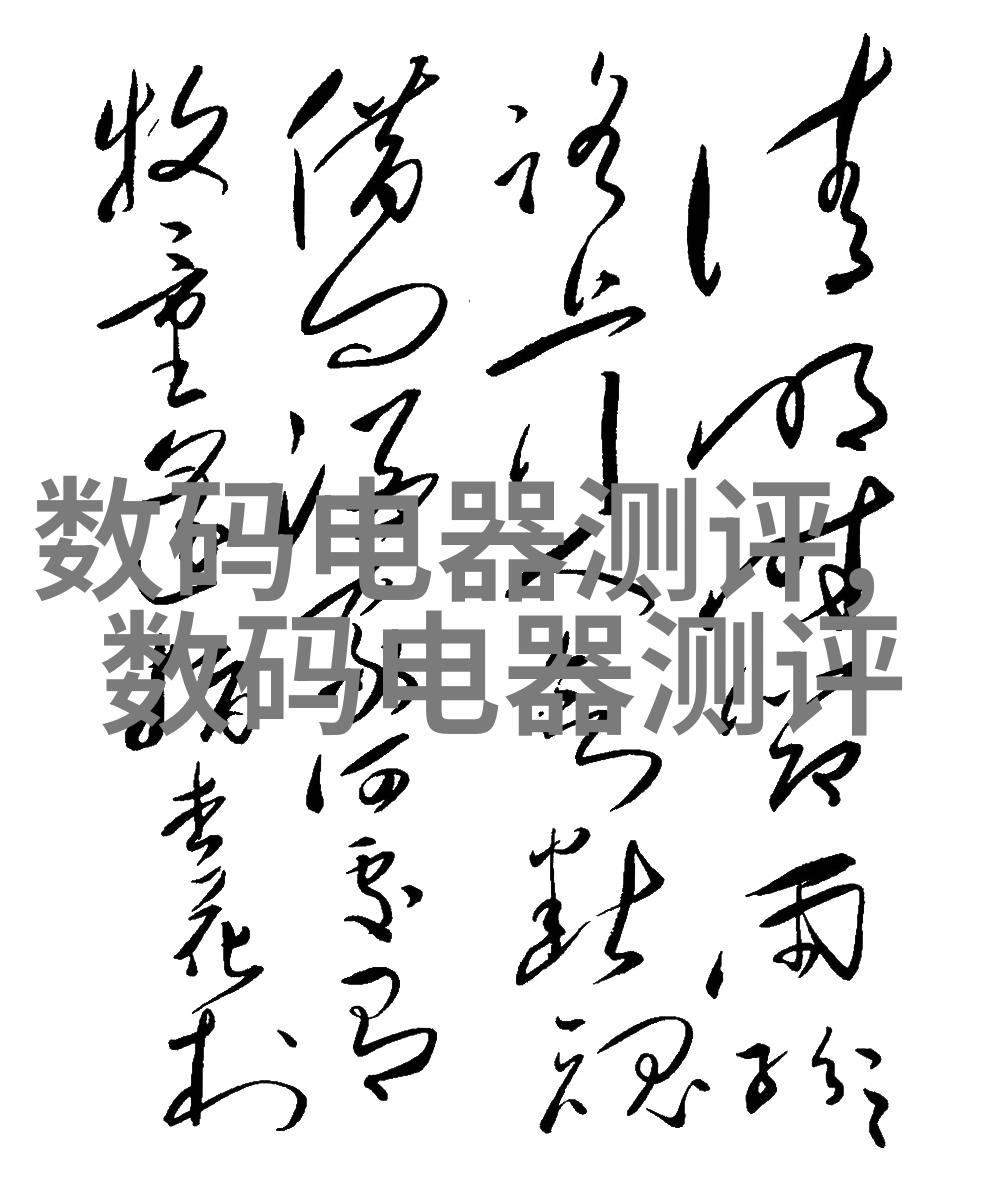 清明時節雨紛々
路上行人欲斷魂
借問酒家何處有
牧童遙指杏花村
数码电器测评,
数码电器测评